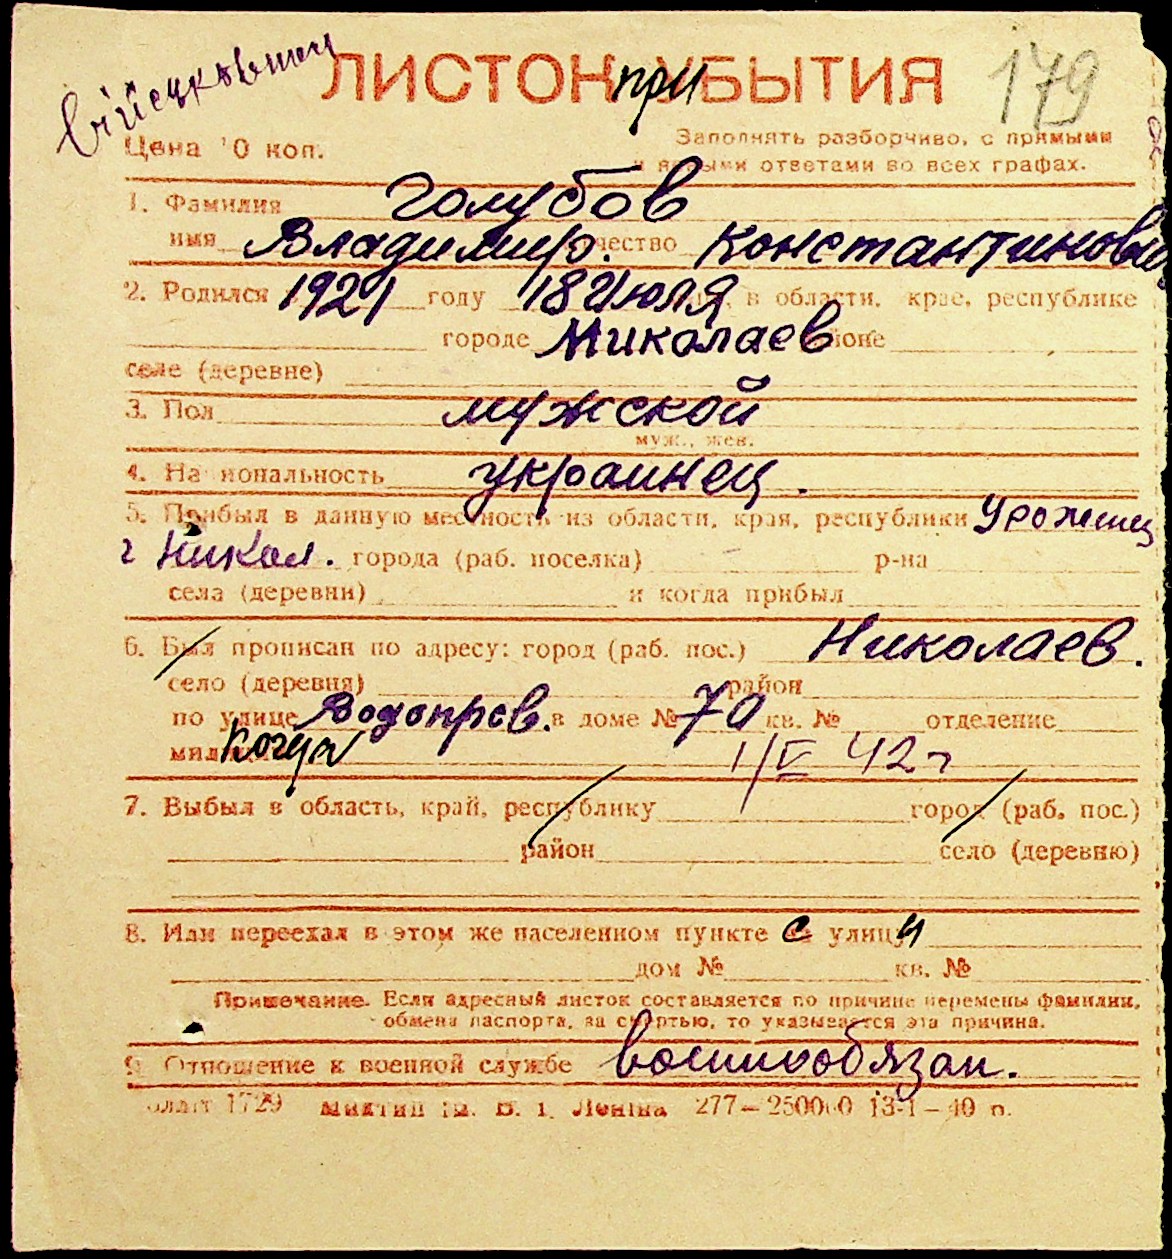 ЛИСТОК при УБЫТИЯ 179
Цена 10 коп. Заполнять разборчиво, с прямыми
и ясными ответами во всех графах.
1. Фамилия Голубов
имя Владимир. отчество Константинович
2. Родился 1921 году 18 Июля в области, крае, республике
городе Николаев районе
селе (деревне)
3. Пол мужской
муж., жен.
4. Национальность украинец.
5. Прибыл в данную местность из области, края, республики Уроженец
г Никол. города (раб. поселка) р-на
села (деревни) и когда прибыл
6. Был прописан по адресу: город (раб. пос.) Николаев.
село (деревня) район
по улице Водопров. в доме № 70 кв. № отделение
милиции когда 1/V 42 г
7. Выбыл в область, край, республику город (раб. пос.)
район село (деревню)
8. Или переехал в этом же населенном пункте с улицы
дом № кв. №
Примечание. Если адресный листок составляется по причине перемены фамилии,
обмена паспорта, за смертью, то указывается эта причина.
9. Отношение к военной службе военнообязан.
1729 В. І. Леніна 277—250000 13-1—40 р.